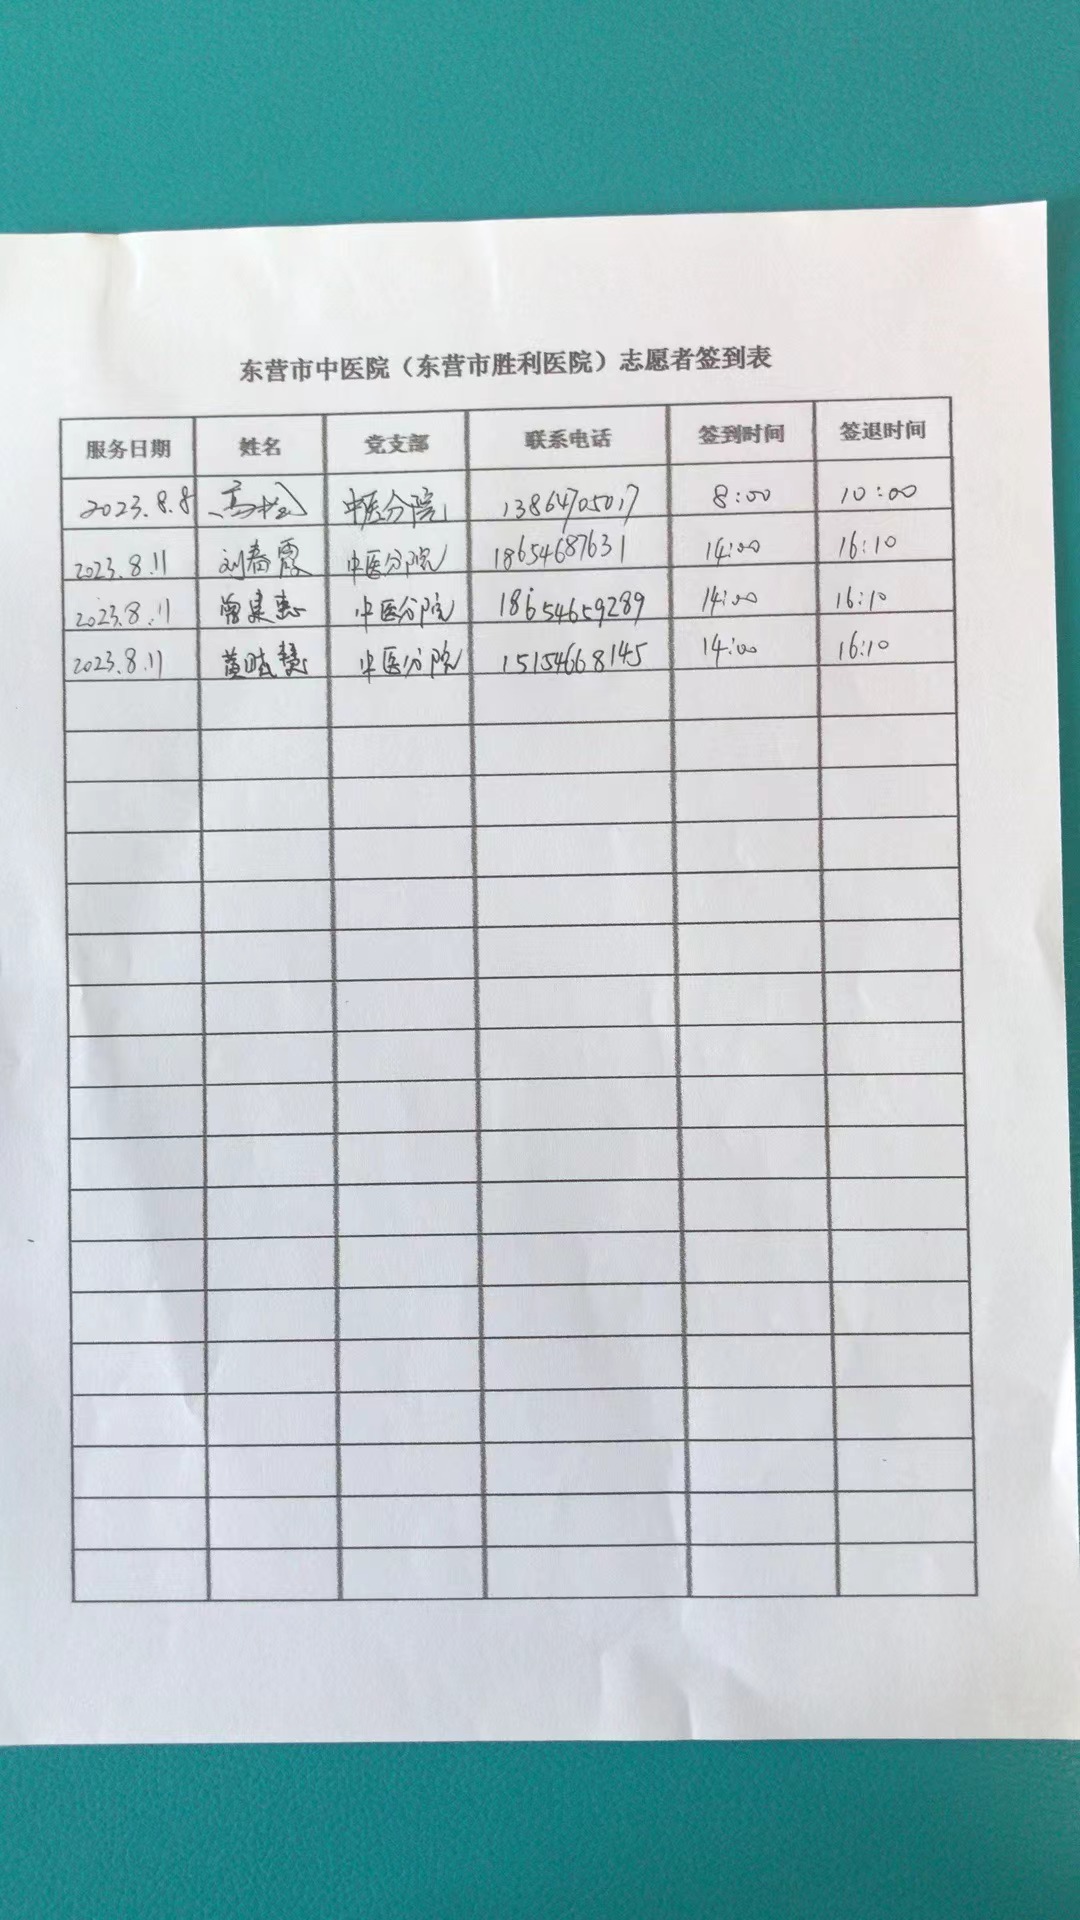 东营市中医院（东营市胜利医院）志愿者签到表
服务日期 姓名 党支部 联系电话 签到时间 签退时间
2023.8.8 高 中医分院 13864705017 8:00 10:00
2023.8.11 刘春霞 中医分院 18654687631 14:00 16:10
2023.8.11 曾建惠 中医分院 18654659289 14:00 16:10
2023.8.11 黄 慧 中医分院 15154668145 14:00 16:10